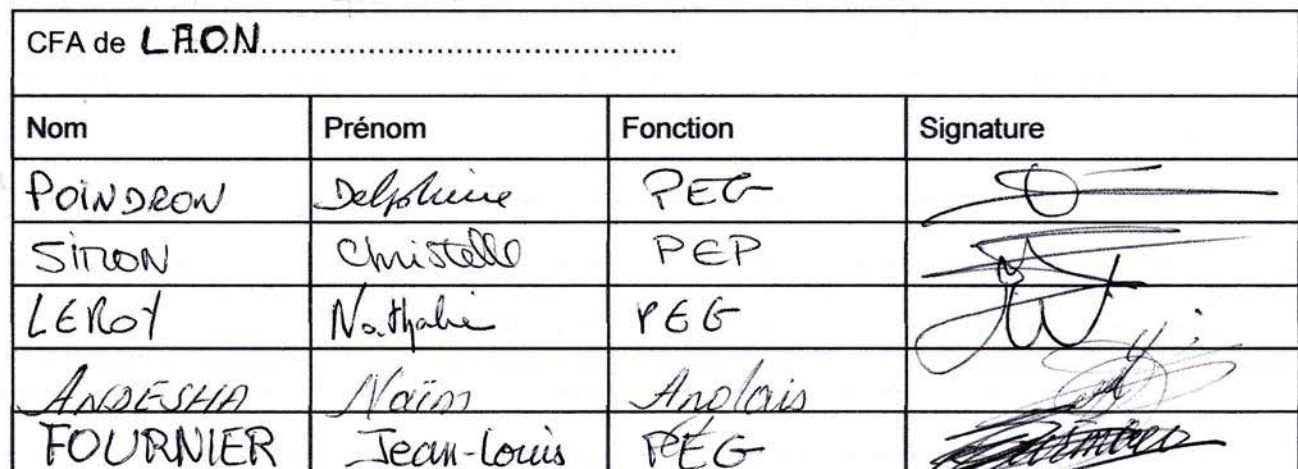 CFA de LAON.............................................
Nom Prénom Fonction Signature
POINDRON Delphine PEG
SIMON Christelle PEP
LEROY Nathalie PEG
ANDESHA Naïm Anglais
FOURNIER Jean-Louis PEG